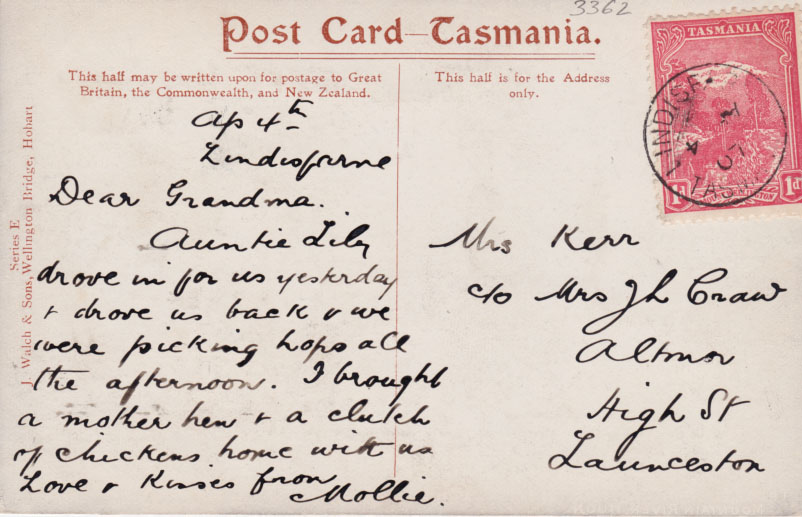 3362
Post Card–Tasmania.
This half may be written upon for postage to Great
Britain, the Commonwealth, and New Zealand.
This half is for the Address
only.
TASMANIA
1d
1d
LINDISF
4
07
TAS
Series E
J. Walch & Sons, Wellington Bridge, Hobart
Ap 4th
Lindisfarne
Dear Grandma.
Auntie Lily
drove in for us yesterday
+ drove us back + we
were picking hops all
the afternoon. I brought
a mother hen + a clutch
of chickens home with us
Love + Kisses from
Mollie.
Mrs Kerr
c/o Mrs J L Craw
Altmor
High St
Launceston